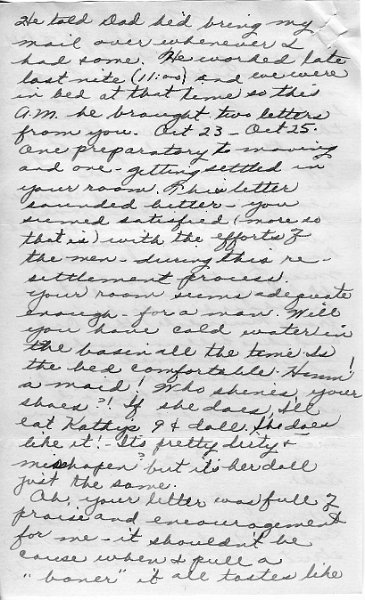 He told Dad he'd bring my
mail over whenever I
had some. He worked late
last nite (11:00) and we were
in bed at that time so this
A.M. he brought two letters
from you. Oct 23 - Oct 25.
One preparatory to moving
and one - getting settled in
your room. This letter
sounded better - you
seemed satisfied (more so
that is) with the efforts of
the men - during this re-
settlement process.
Your room seems adequate
enough - for a man. Will
you have cold water in
the basin all the time. Is
the bed comfortable. Hmm!
a maid! Who shines your
shoes?! If she does, I'll
eat Kathy's doll. She does
like it! - It's pretty dirty &
mishapen but it's her doll
just the same.
Oh, your letter was full of
praise and encouragement
for me - it shouldn't be
cause when I pull a
"boner" it all tastes like